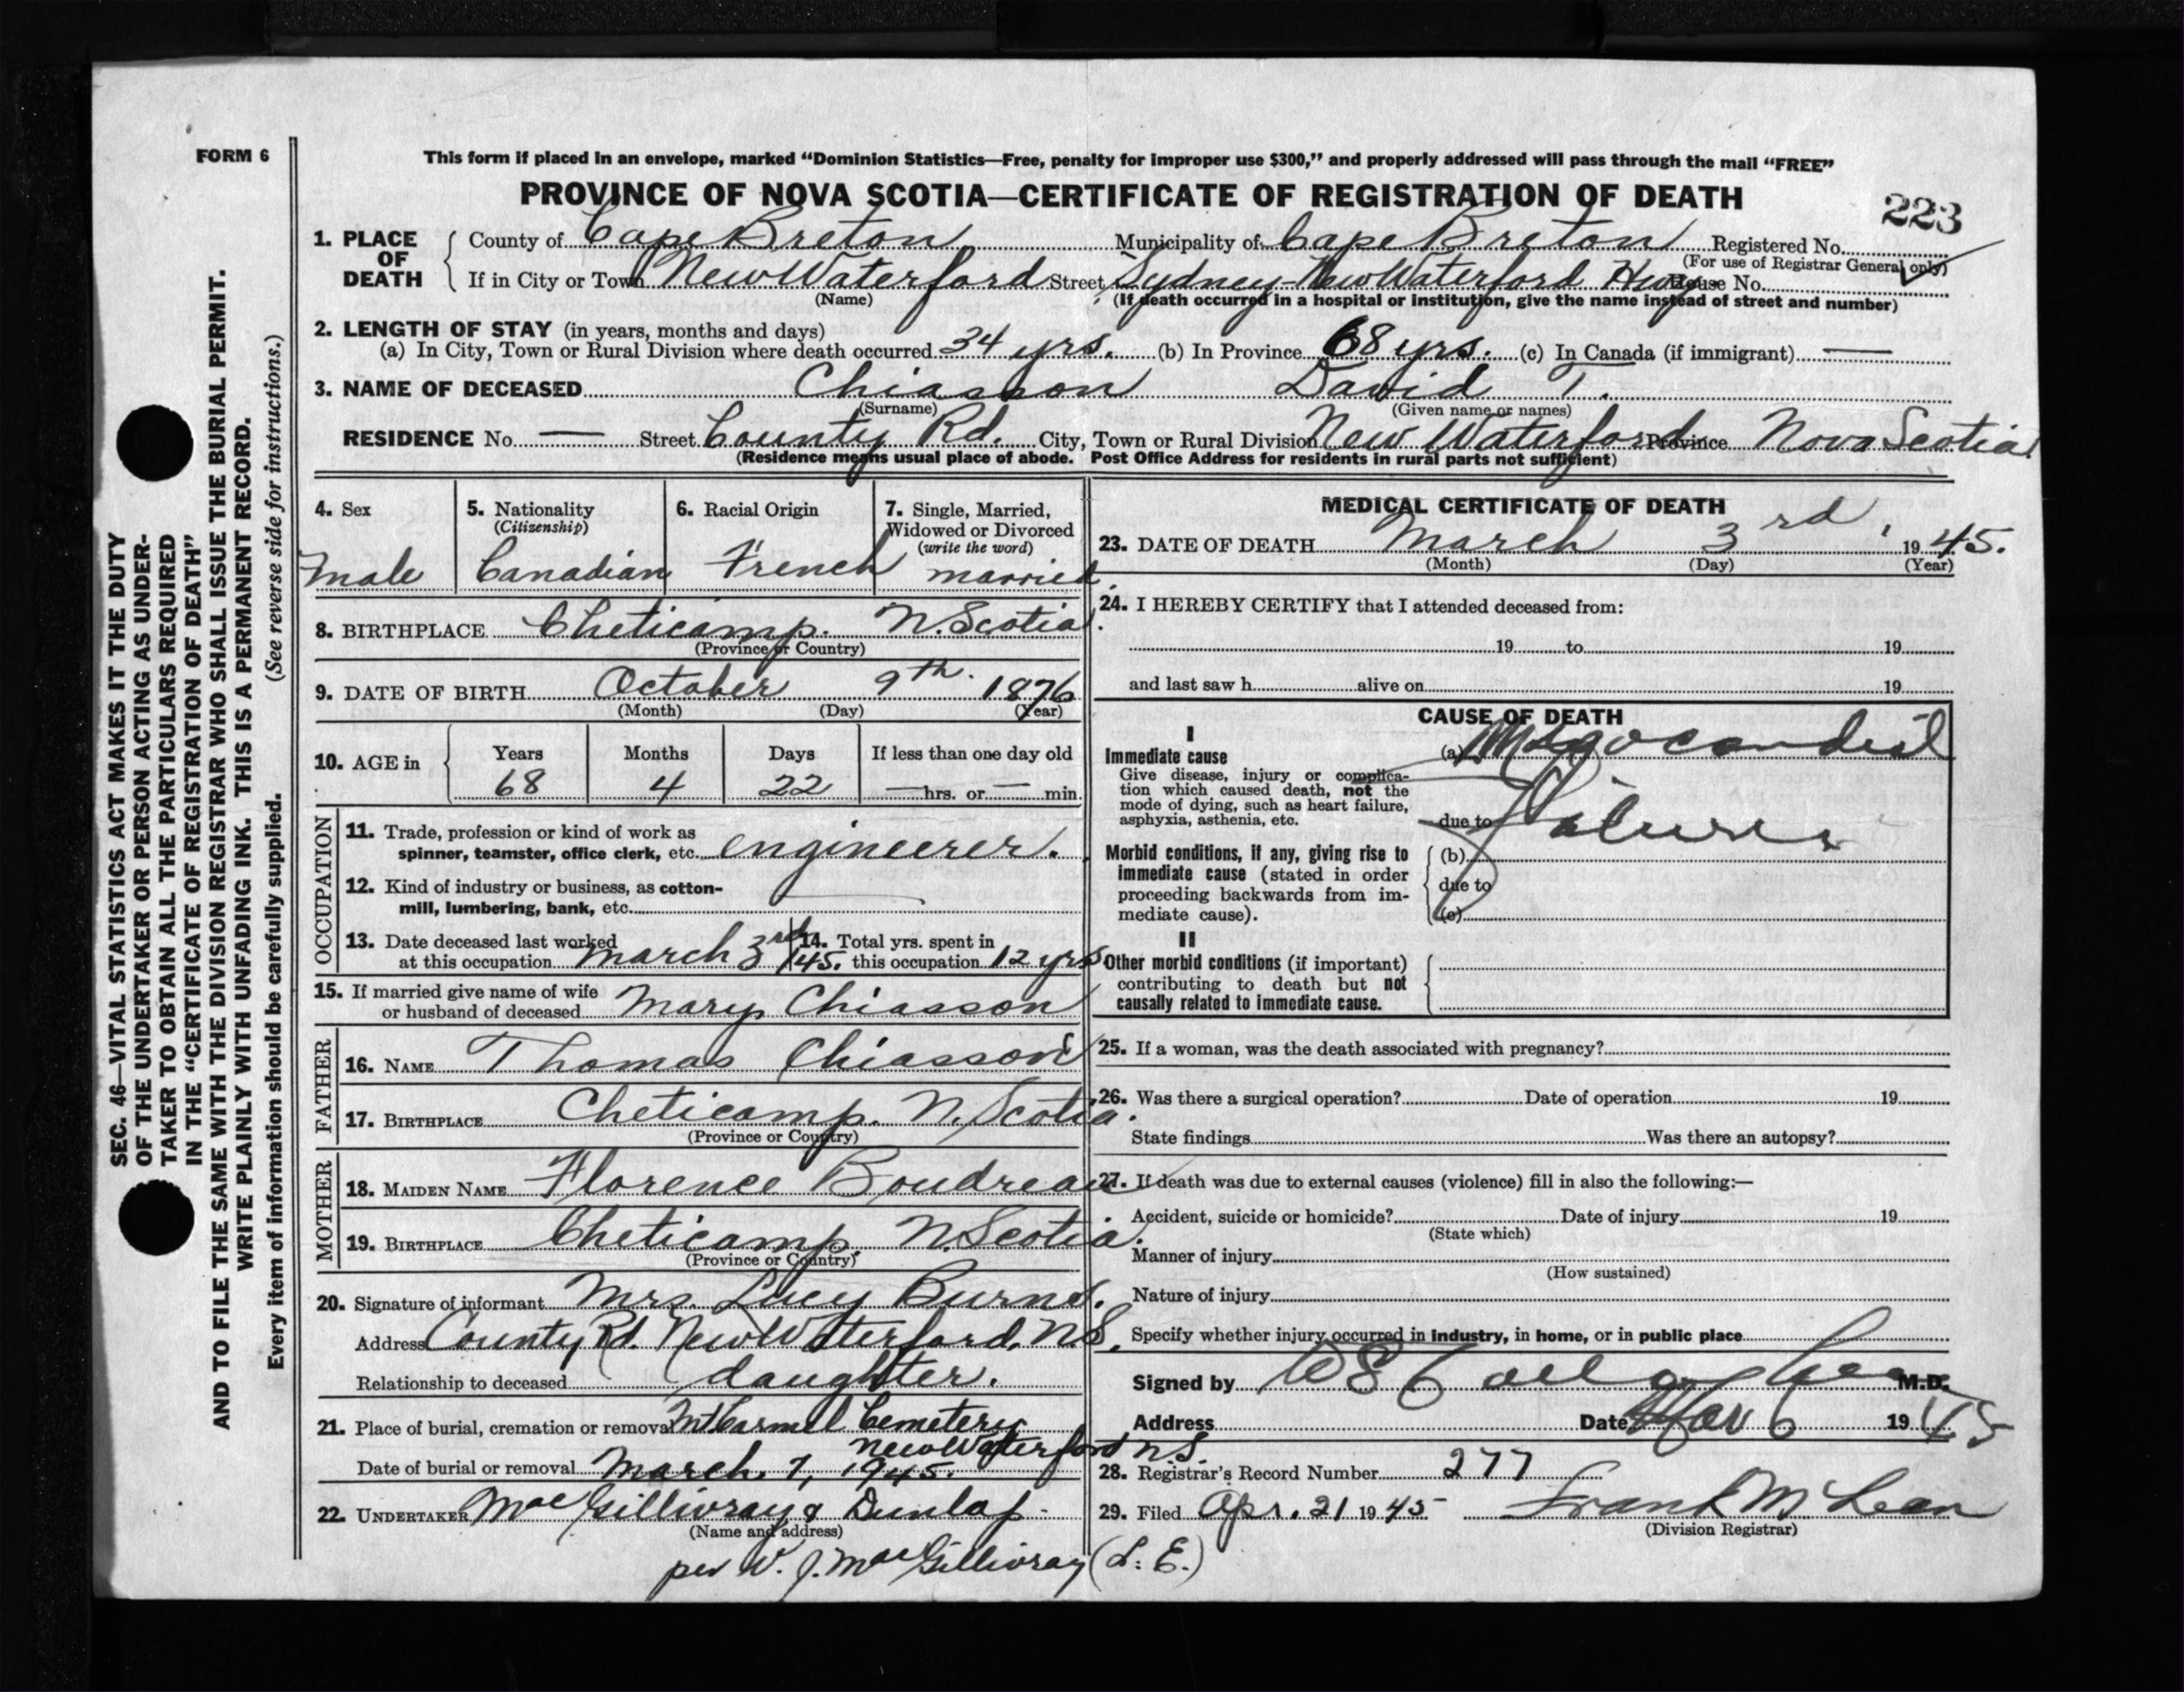 FORM 6
This form if placed in an envelope, marked “Dominion Statistics—Free, penalty for improper use $300,” and properly addressed will pass through the mail “FREE”
PROVINCE OF NOVA SCOTIA—CERTIFICATE OF REGISTRATION OF DEATH
223
1. PLACE OF DEATH
County of Cape Breton Municipality of Cape Breton Registered No.
(For use of Registrar General only)
If in City or Town New Waterford Street Sydney-New Waterford Hwy House No.
(Name) (If death occurred in a hospital or institution, give the name instead of street and number)
2. LENGTH OF STAY (in years, months and days)
(a) In City, Town or Rural Division where death occurred 34 yrs. (b) In Province 68 yrs. (c) In Canada (if immigrant) —
3. NAME OF DECEASED Chiasson David T.
(Surname) (Given name or names)
RESIDENCE No — Street County Rd. City, Town or Rural Division New Waterford Province Nova Scotia
(Residence means usual place of abode. Post Office Address for residents in rural parts not sufficient)
4. Sex
Male
5. Nationality
(Citizenship)
Canadian
6. Racial Origin
French
7. Single, Married,
Widowed or Divorced
(write the word)
married.
8. BIRTHPLACE Cheticamp. N. Scotia.
(Province or Country)
9. DATE OF BIRTH October 9th. 1876
(Month) (Day) (Year)
10. AGE in
Years Months Days If less than one day old
68 4 22 — hrs. or — min.
OCCUPATION
11. Trade, profession or kind of work as
spinner, teamster, office clerk, etc. engineerer.
12. Kind of industry or business, as cotton-
mill, lumbering, bank, etc. —
13. Date deceased last worked
at this occupation March 3rd/45.
14. Total yrs. spent in
this occupation 12 yrs
15. If married give name of wife
or husband of deceased Mary Chiasson
FATHER
16. NAME Thomas Chiasson
17. BIRTHPLACE Cheticamp. N. Scotia.
(Province or Country)
MOTHER
18. MAIDEN NAME Florence Boudreau
19. BIRTHPLACE Cheticamp. N. Scotia.
(Province or Country)
20. Signature of informant Mrs. Lucy Burns.
Address County Rd. New Waterford. N.S.
Relationship to deceased daughter.
21. Place of burial, cremation or removal Mt Carmel Cemetery
New Waterford N.S.
Date of burial or removal March. 7, 1945.
22. UNDERTAKER MacGillivray & Dunlap.
(Name and address)
per W. J. MacGillivray (L. E.)
MEDICAL CERTIFICATE OF DEATH
23. DATE OF DEATH March 3rd, 1945.
(Month) (Day) (Year)
24. I HEREBY CERTIFY that I attended deceased from:
19 to 19
and last saw h alive on 19
CAUSE OF DEATH
I
Immediate cause
Give disease, injury or complica-
tion which caused death, not the
mode of dying, such as heart failure,
asphyxia, asthenia, etc.
(a) Myocardial
due to Failure
Morbid conditions, if any, giving rise to
immediate cause (stated in order
proceeding backwards from im-
mediate cause).
(b)
due to
(c)
II
Other morbid conditions (if important)
contributing to death but not
causally related to immediate cause.
25. If a woman, was the death associated with pregnancy?
26. Was there a surgical operation? Date of operation 19
State findings Was there an autopsy?
27. If death was due to external causes (violence) fill in also the following:—
Accident, suicide or homicide? Date of injury 19
(State which)
Manner of injury
(How sustained)
Nature of injury
Specify whether injury occurred in industry, in home, or in public place
Signed by M.D.
Address Date Mar 6 1945
28. Registrar's Record Number 277
29. Filed Apr. 21 1945 Frank McLean
(Division Registrar)
SEC. 46—VITAL STATISTICS ACT MAKES IT THE DUTY
OF THE UNDERTAKER OR PERSON ACTING AS UNDER-
TAKER TO OBTAIN ALL THE PARTICULARS REQUIRED
IN THE “CERTIFICATE OF REGISTRATION OF DEATH”
AND TO FILE THE SAME WITH THE DIVISION REGISTRAR WHO SHALL ISSUE THE BURIAL PERMIT.
WRITE PLAINLY WITH UNFADING INK. THIS IS A PERMANENT RECORD.
Every item of information should be carefully supplied. (See reverse side for instructions.)